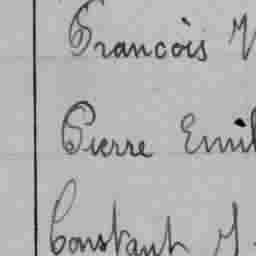 François
Pierre Emil
Constant J.